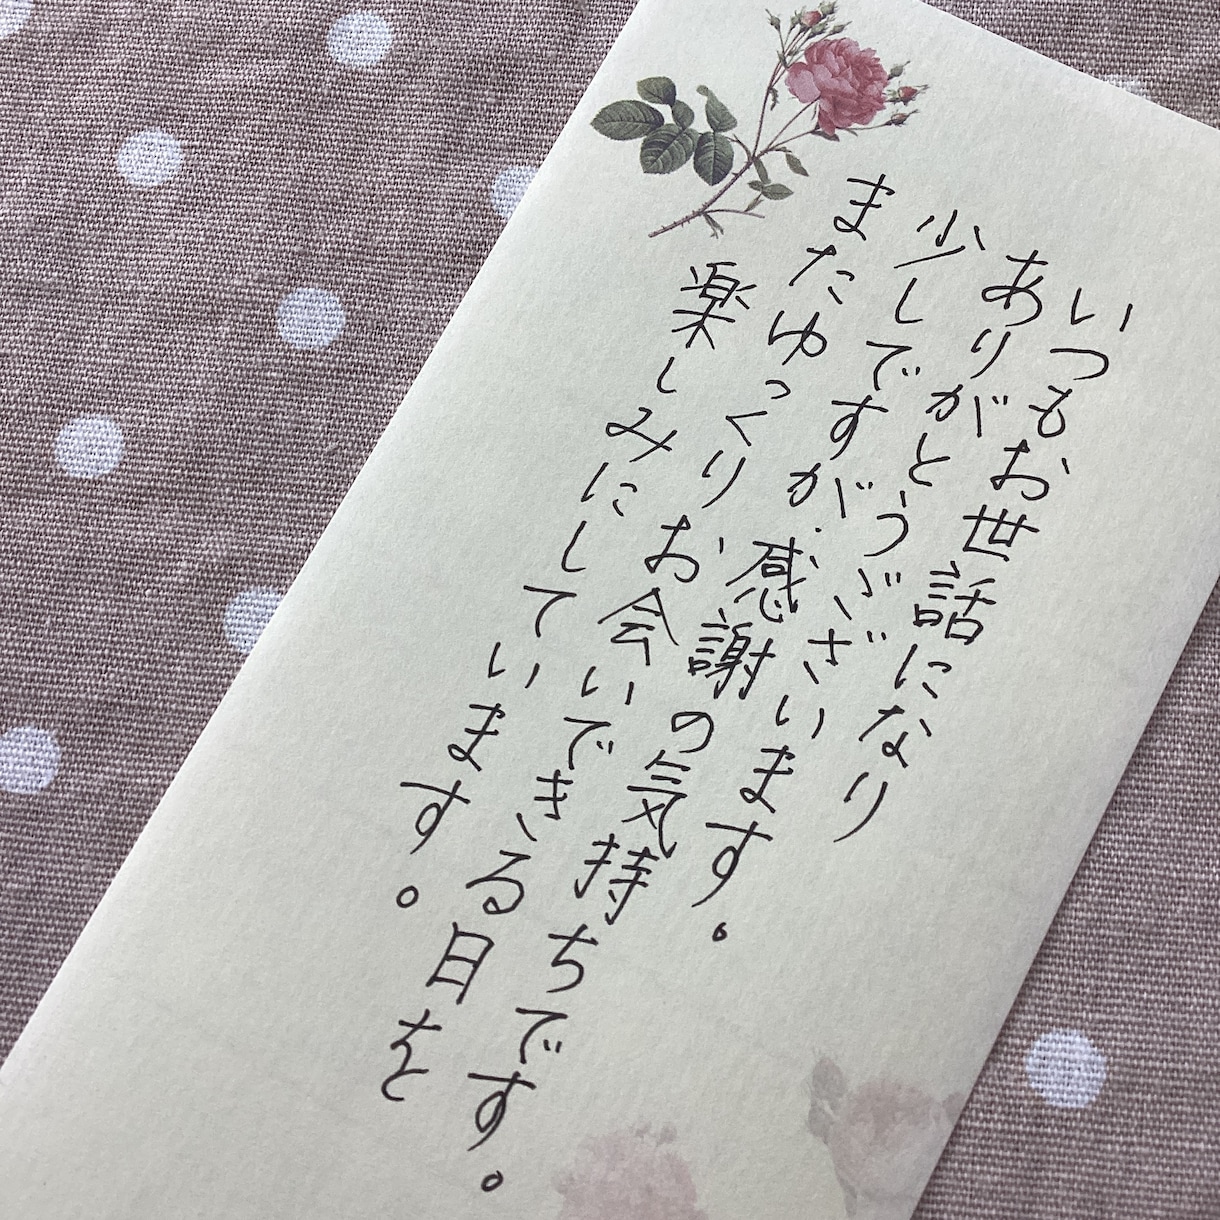 いつもお世話になり
ありがとうございます。
少しですが、感謝の気持ちです。
またゆっくりお会いできる日を
楽しみにしています。